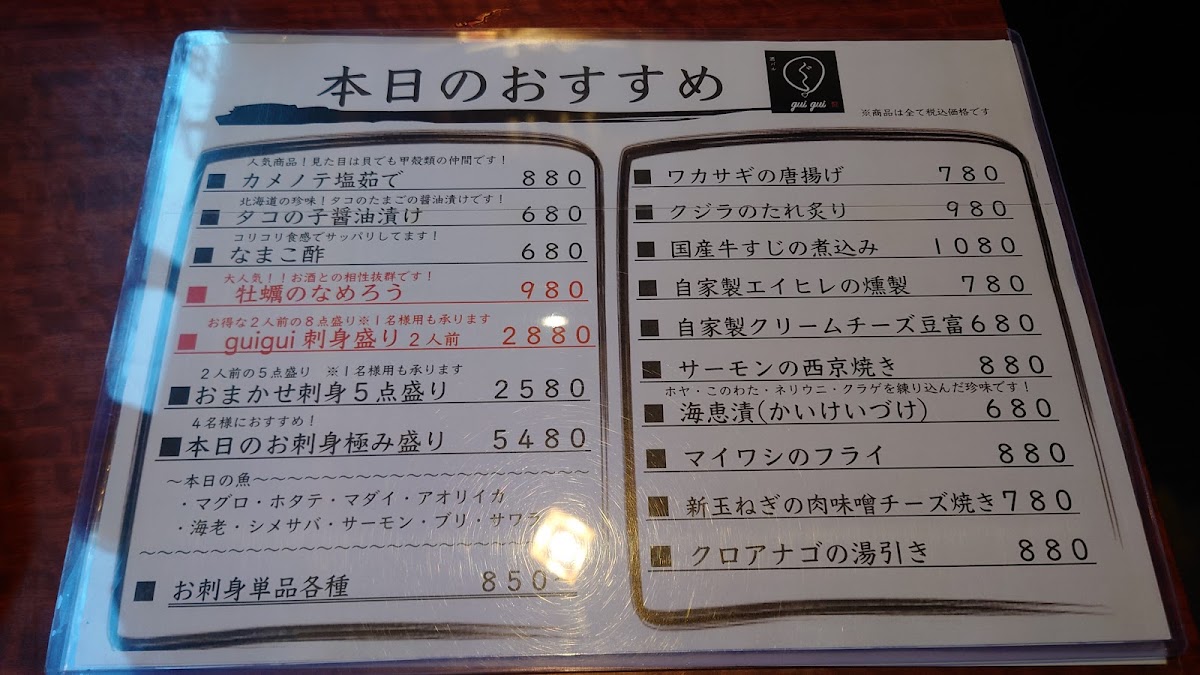 本日のおすすめ
ぐ
gui gui
※商品は全て税込価格です
人気商品！見た目は貝でも甲殻類の仲間です！
■ カメノテ塩茹で 880
北海道の珍味！タコのたまごの醤油漬けです！
■ タコの子醤油漬け 680
コリコリ食感でサッパリしてます！
■ なまこ酢 680
大人気！！お酒との相性抜群です！
■ 牡蠣のなめろう 980
お得な2人前の8点盛り※1名様用も承ります
■ guigui 刺身盛り 2人前 2880
2人前の5点盛り ※1名様用も承ります
■ おまかせ刺身5点盛り 2580
4名様におすすめ！
■ 本日のお刺身極み盛り 5480
～本日の魚～～～～～～～～～～～～～～～～～～～～
・マグロ・ホタテ・マダイ・アオリイカ
・海老・シメサバ・サーモン・ブリ・サワラ
～～～～～～～～～～～～～～～～～～～～～～～～
■ お刺身単品各種 850～
■ ワカサギの唐揚げ 780
■ クジラのたれ炙り 980
■ 国産牛すじの煮込み 1080
■ 自家製エイヒレの燻製 780
■ 自家製クリームチーズ豆富 680
■ サーモンの西京焼き 880
ホヤ・このわた・ネリウニ・クラゲを練り込んだ珍味です！
■ 海恵漬(かいけいづけ) 680
■ マイワシのフライ 880
■ 新玉ねぎの肉味噌チーズ焼き 780
■ クロアナゴの湯引き 880